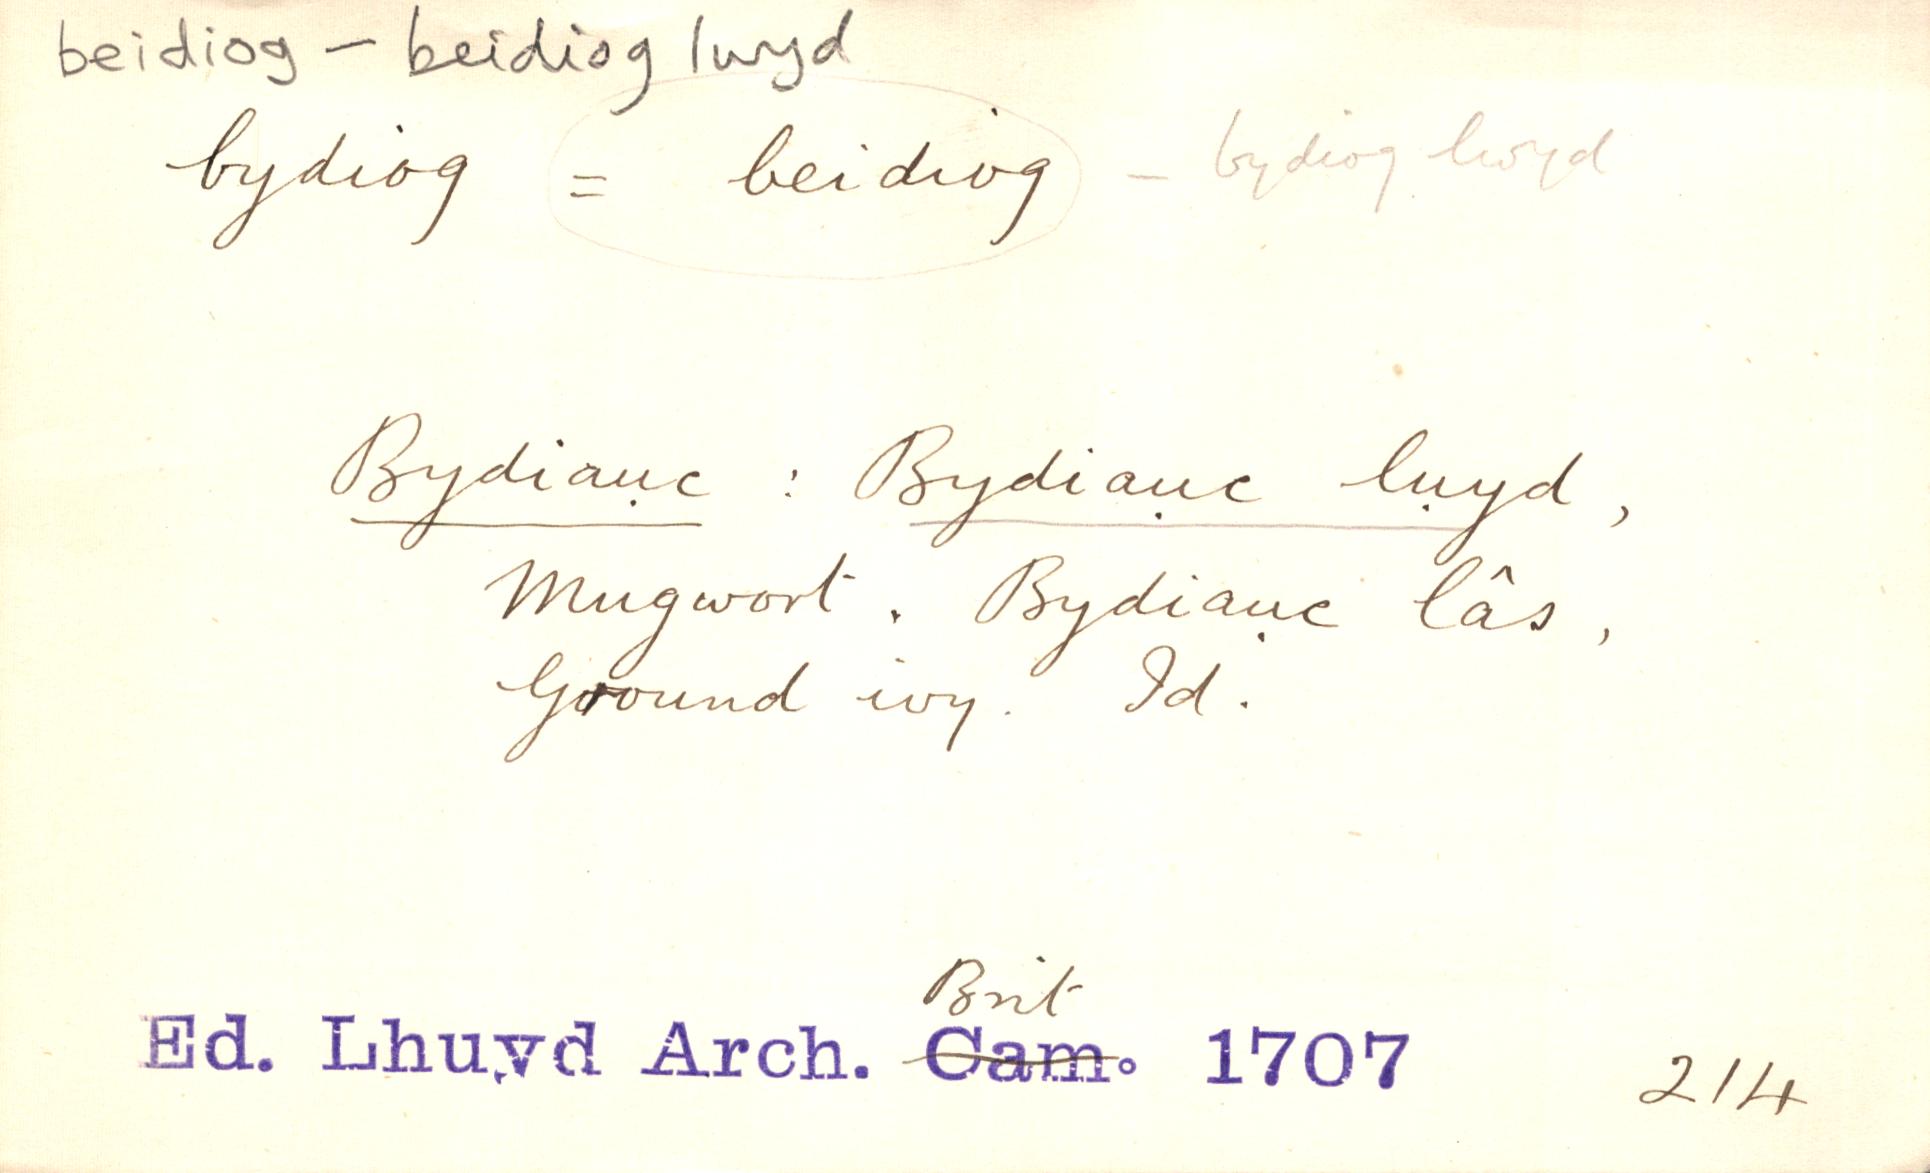 beidiog – beidiog lwyd
bydiog = beidiog – bydiog lwyd
Bydiaục : Bydiaục lụyd,
Mugwort. Bydiaục lâs,
Ground ivy. Id.
Brit
Ed. Lhuyd Arch. Cam. 1707
214